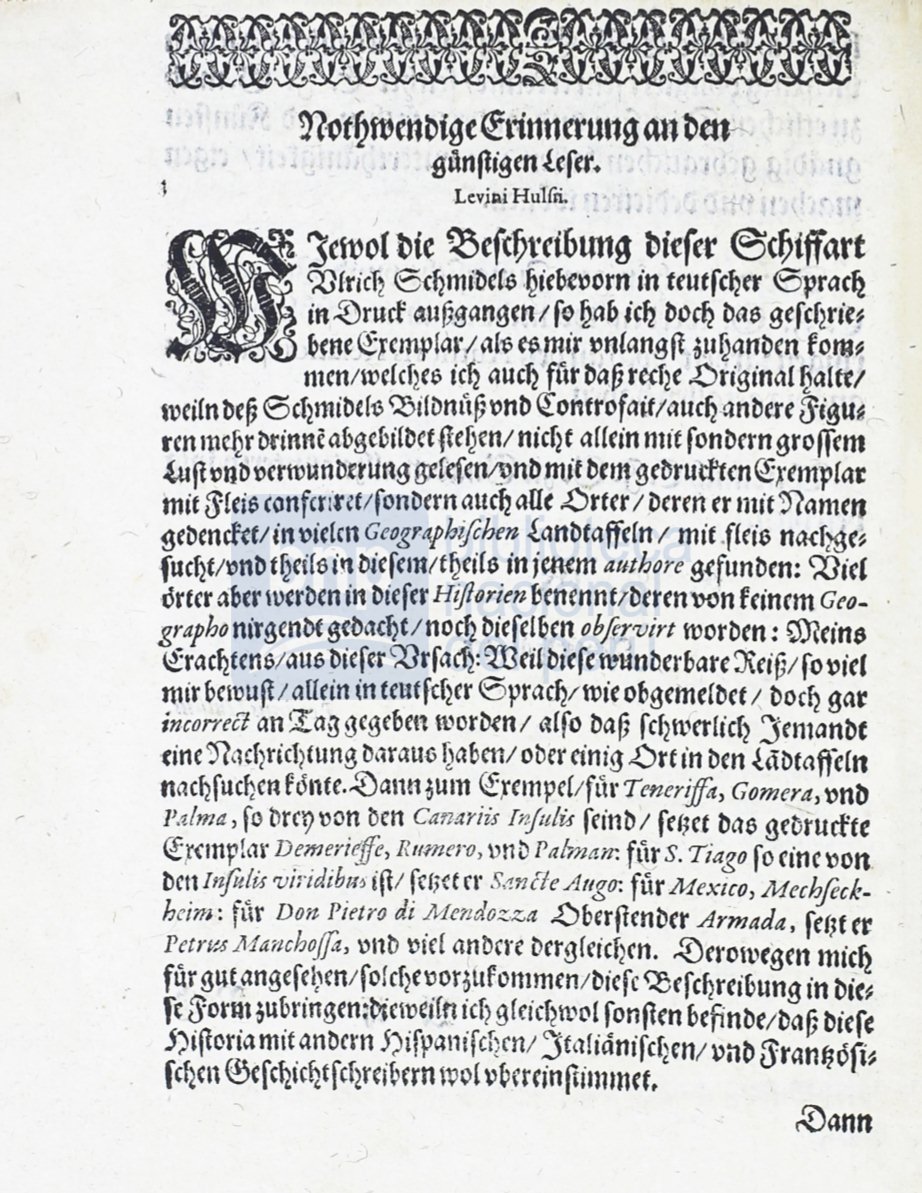 Nothwendige Erinnerung an den
günstigen Leser.
Levini Hulsii.
WJewol die Beschreibung dieser Schiffart
Vlrich Schmidels hiebevorn in teutscher Sprach
in Druck außgangen / so hab ich doch das geschrie-
bene Exemplar / als es mir vnlangst zuhanden kom-
men / welches ich auch für daß rechte Original halte /
weiln deß Schmidels Bildnüß vnd Controfait / auch andere Figu-
ren mehr drinnē abgebildet stehen / nicht allein mit sondern grossem
Lust vnd verwunderung gelesen / vnd mit dem gedruckten Exemplar
mit Fleis conferiret / sondern auch alle Örter / deren er mit Namen
gedencket / in vielen Geographischen Landtaffeln / mit fleis nachge-
sucht / vnd theils in diesem / theils in jenem authore gefunden: Viel
örter aber werden in dieser Historien benennt / deren von keinem Geo-
grapho nirgendt gedacht / noch dieselben observirt worden: Meins
Erachtens / aus dieser Vrsach: Weil diese wunderbare Reiß / so viel
mir bewust / allein in teutscher Sprach / wie obgemeldet / doch gar
incorrect an Tag gegeben worden / also daß schwerlich Jemandt
eine Nachrichtung daraus haben / oder einig Ort in den Lādtaffeln
nachsuchen könte. Dann zum Exempel / für Teneriffa, Gomera, vnd
Palma, so drey von den Canariis Insulis seind / setzet das gedruckte
Exemplar Demerieffe, Rumero, vnd Palman: für S. Tiago so eine von
den Insulis viridibus ist / setzet er Sancte Augo: für Mexico, Mechseck-
heim: für Don Pietro di Mendozza Oberstender Armada, setzt er
Petrus Manchossa, vnd viel andere dergleichen. Derowegen mich
für gut angesehen / solche vorzukommen / diese Beschreibung in die-
se Form zubringen: dieweiln ich gleichwol sonsten befinde / daß diese
Historia mit andern Hispanischen / Italiänischen / vnd Frantzösi-
schen Geschichtschreibern wol vbereinstimmet.
Dann
biblioteca
nacional
del perú